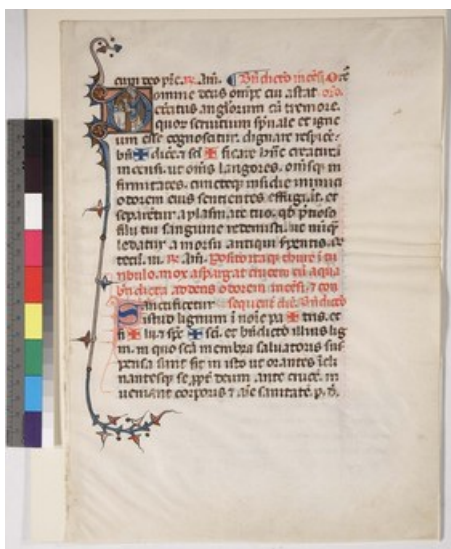 cum deo pr̄e. R. am̄. Bn̄dictō incēsi. Orē
omine deus om̄ps cui astat oro.
exc̄itus anglorum cū tremore.
quor̄ seruitium sp̄uale et igne
um esse cognoscitur. dignare respice:
bn̄ ✠ dice: et scī ✠ ficare hanc creaturā
incensi. ut om̄s langores. om̄sq̄ in
firmitates. cuncteq̄ insidie inimici
odorem eius sentientes effugiāt. et
separētur a plasmate tuo. qd̄ p̄tioso
filii tui sanguine redemisti. ut nūq̄
ledatur a morsu antiqui serpentis.
R. am̄. Posito itaq̄ thure ī tu
ribulo. mox aspergat crucem cū aqua
bn̄dicta addens odorem incēsi. et
Sanctificetur sequent Bn̄dictō
istud lignum ī noīe pa ✠ tris. et
fi ✠ lii. et sp̄c ✠ scī. et bn̄dictō illius lig
ni. in quo scā membra saluatoris sus
pensa sunt sit in isto ut orantes īcli
nantesq̄ se ppt̄ deum ante crucē. in
ueniant corporis et aīe sanitatē. p.